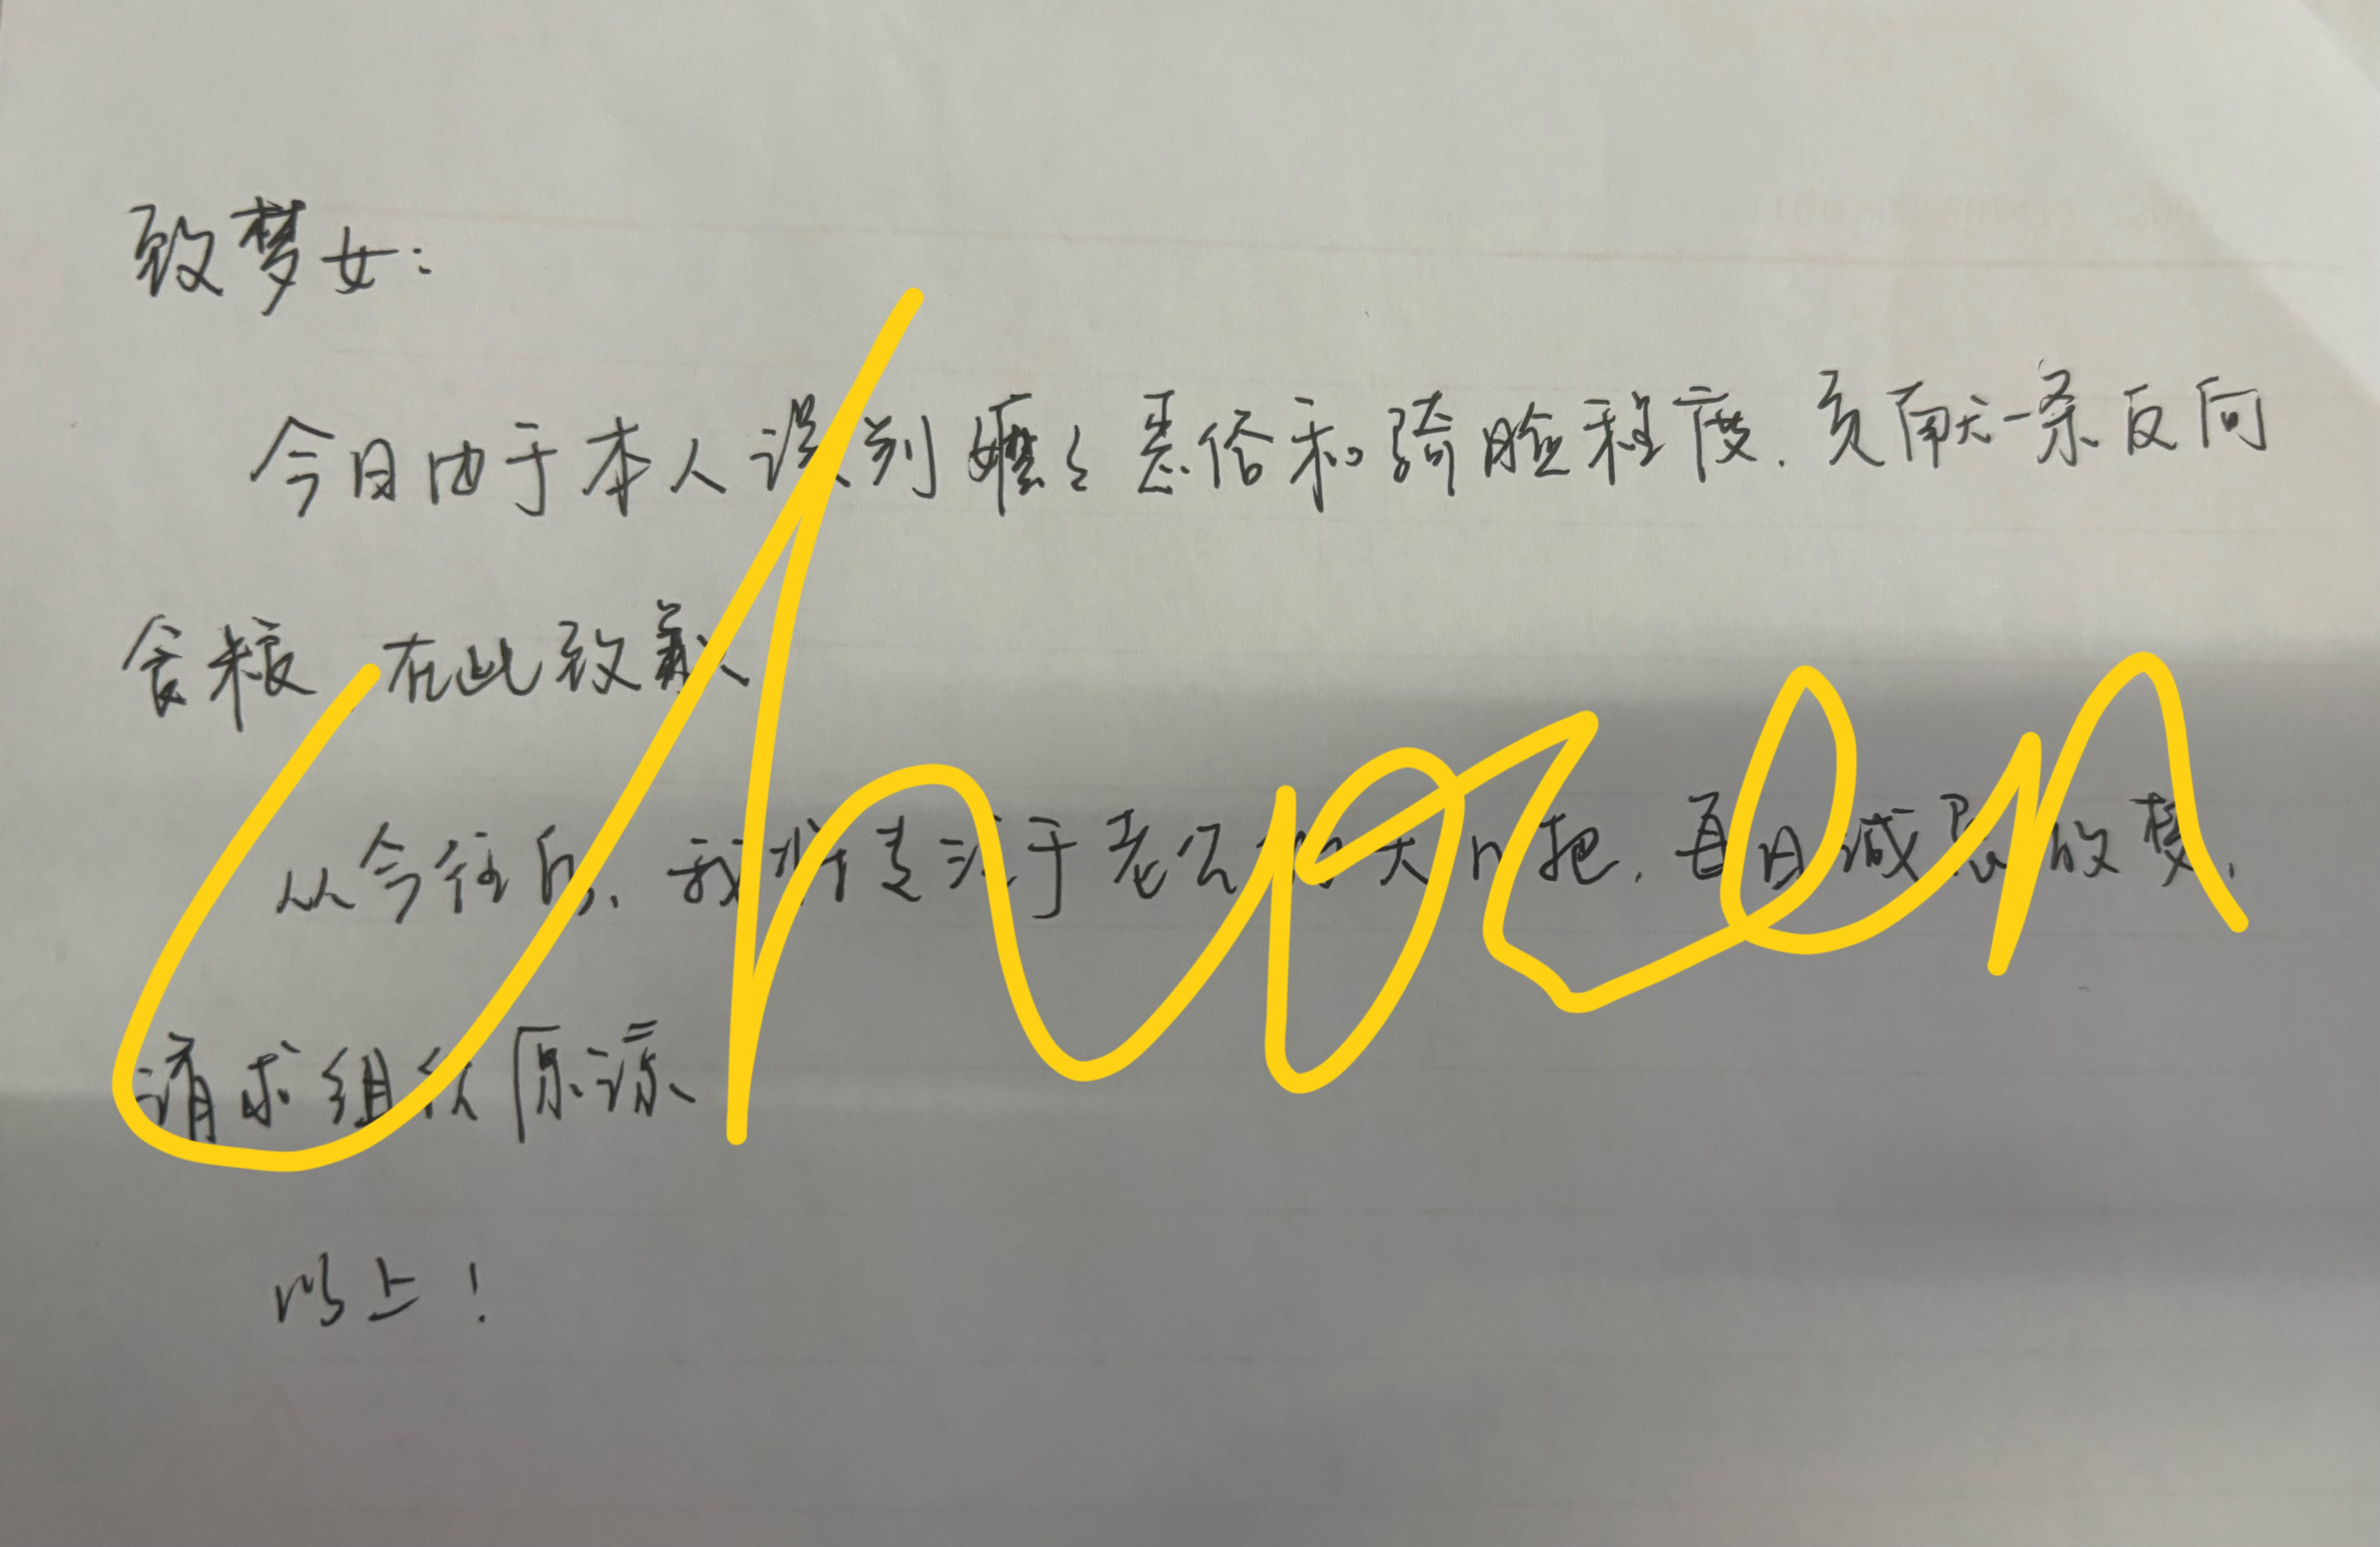 致梦女：
今日由于本人误判嬷々恶俗和骑脸程度，贡献一条反向
食粮，在此致歉
从今往后，我将专注于老公的大几把，每日诚恳做梦，
请求组织原谅
以上！
Chosen